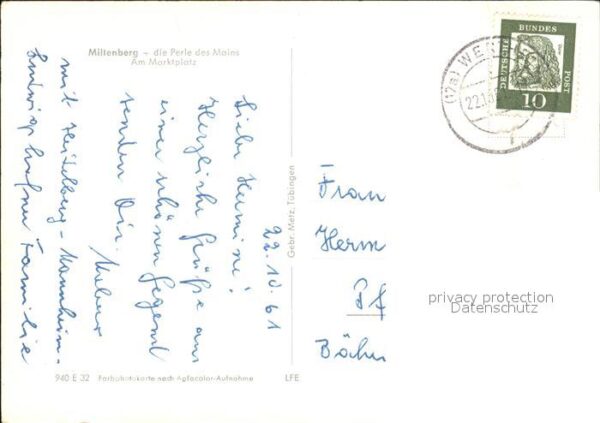 Miltenberg – die Perle des Mains
Am Marktplatz
22.10.61
Liebe Hermine!
Herzliche Grüße aus
einer schönen Gegend
senden Dir
mit Heidelberg - Mannheim-
Ludwigshafen Familie
Gebr. Metz, Tübingen
940 E 32 Farbphotokarte nach Agfacolor-Aufnahme LFE
(17a) WE
22.1
DEUTSCHE BUNDES POST
Dürer
10
Frau
Herm
Pf
Böhn
privacy protection
Datenschutz